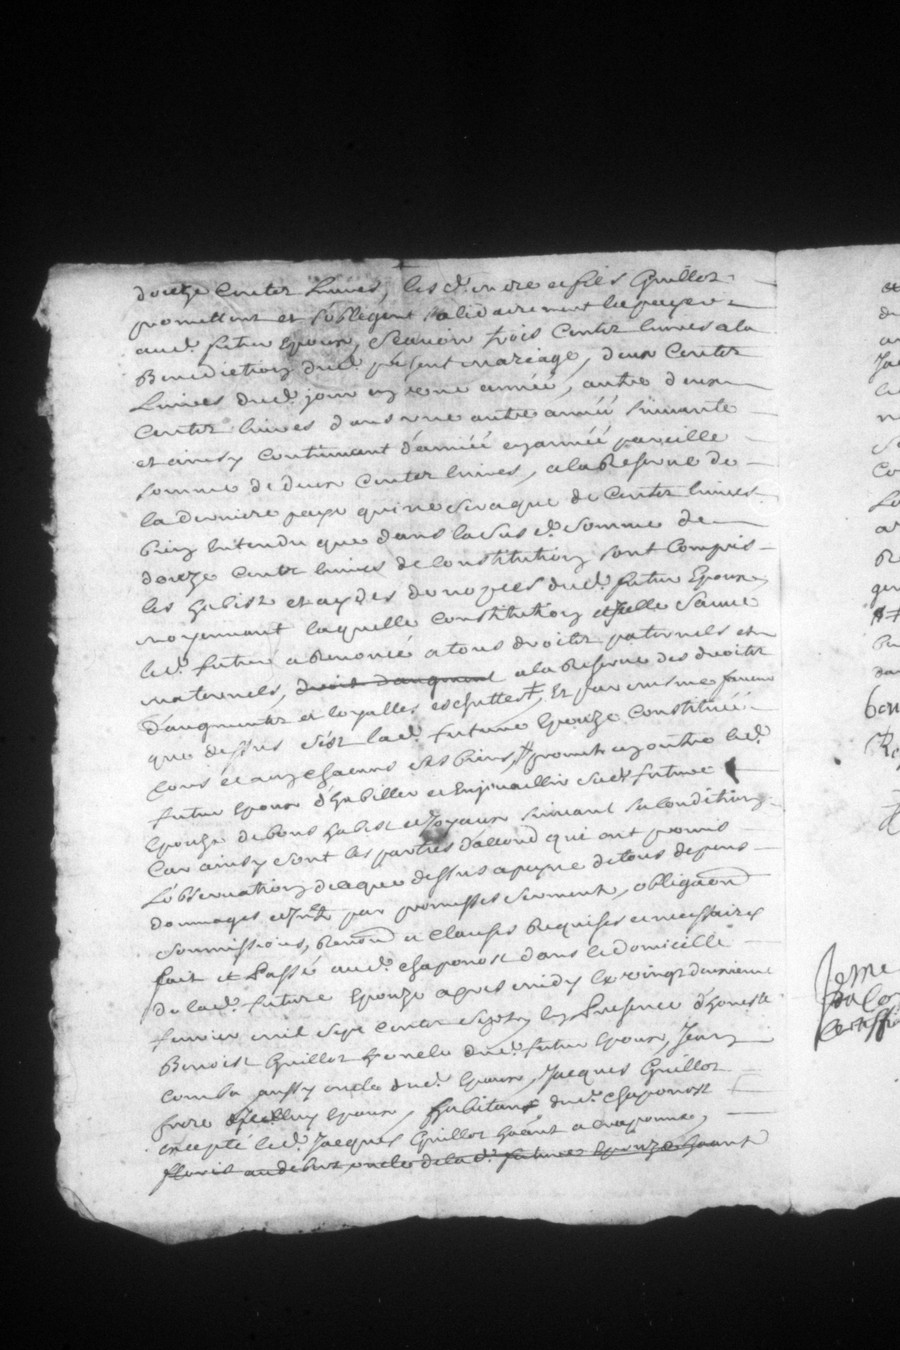 douze centz livres, les d. mere et fils Guillot
promettent et s'obligent solidairement les payer
aud. futur epoux, scavoir trois centz livres a la
Benediction dud. present mariage, deux centz
Livres dud. jour en une année, autre deux
centz livres dans une autre année suivante
et ainsy continuant d'année en année pareille
somme de deux centz livres, a la Reserve de
la derniere paye qui ne sera que de centz livres
bien entendu que dans la susd. somme de
douze centz livres de constitution sont compris
les habist et aydes de nopces dud. futur Epoux
moyennant laquelle constitution et icelle sauve
led. futur a Renoncé a tous droitz paternels et
maternels, droit d'augment a la Reserve des droitz
d'augmentz et loyalles escheuttes, Et par mesme
que dessus s'est lad. future epouze constituée
tous et un chacuns ses biens, promet en outre led.
futur epoux d'habiller et Enjouailler sad. future
epouze de bons habist et Joyaux suivant sa condition
Car ainsy sont les parties d'accord qui ont promis
L'observation de ce que dessus a peyne de tous depens
dommages et intz par promesses serments, obligaon
soumissions, Renon et clauses Requises et necessaires
fait et Passé aud. chaponost dans le domicille
de lad. future epouze apres midy le vingt
fevrier mil sept centz En Presence d'honeste
Benoist Guillot oncle dud. futur epoux, Jean
Comba aussy oncle dud. epoux, Jacques Guillot
frere d'icelluy epoux, habitans dud. chaponost
excepté led. Jacques Guillot hãnt a craponne,
oncle de lad. future epouze hãant